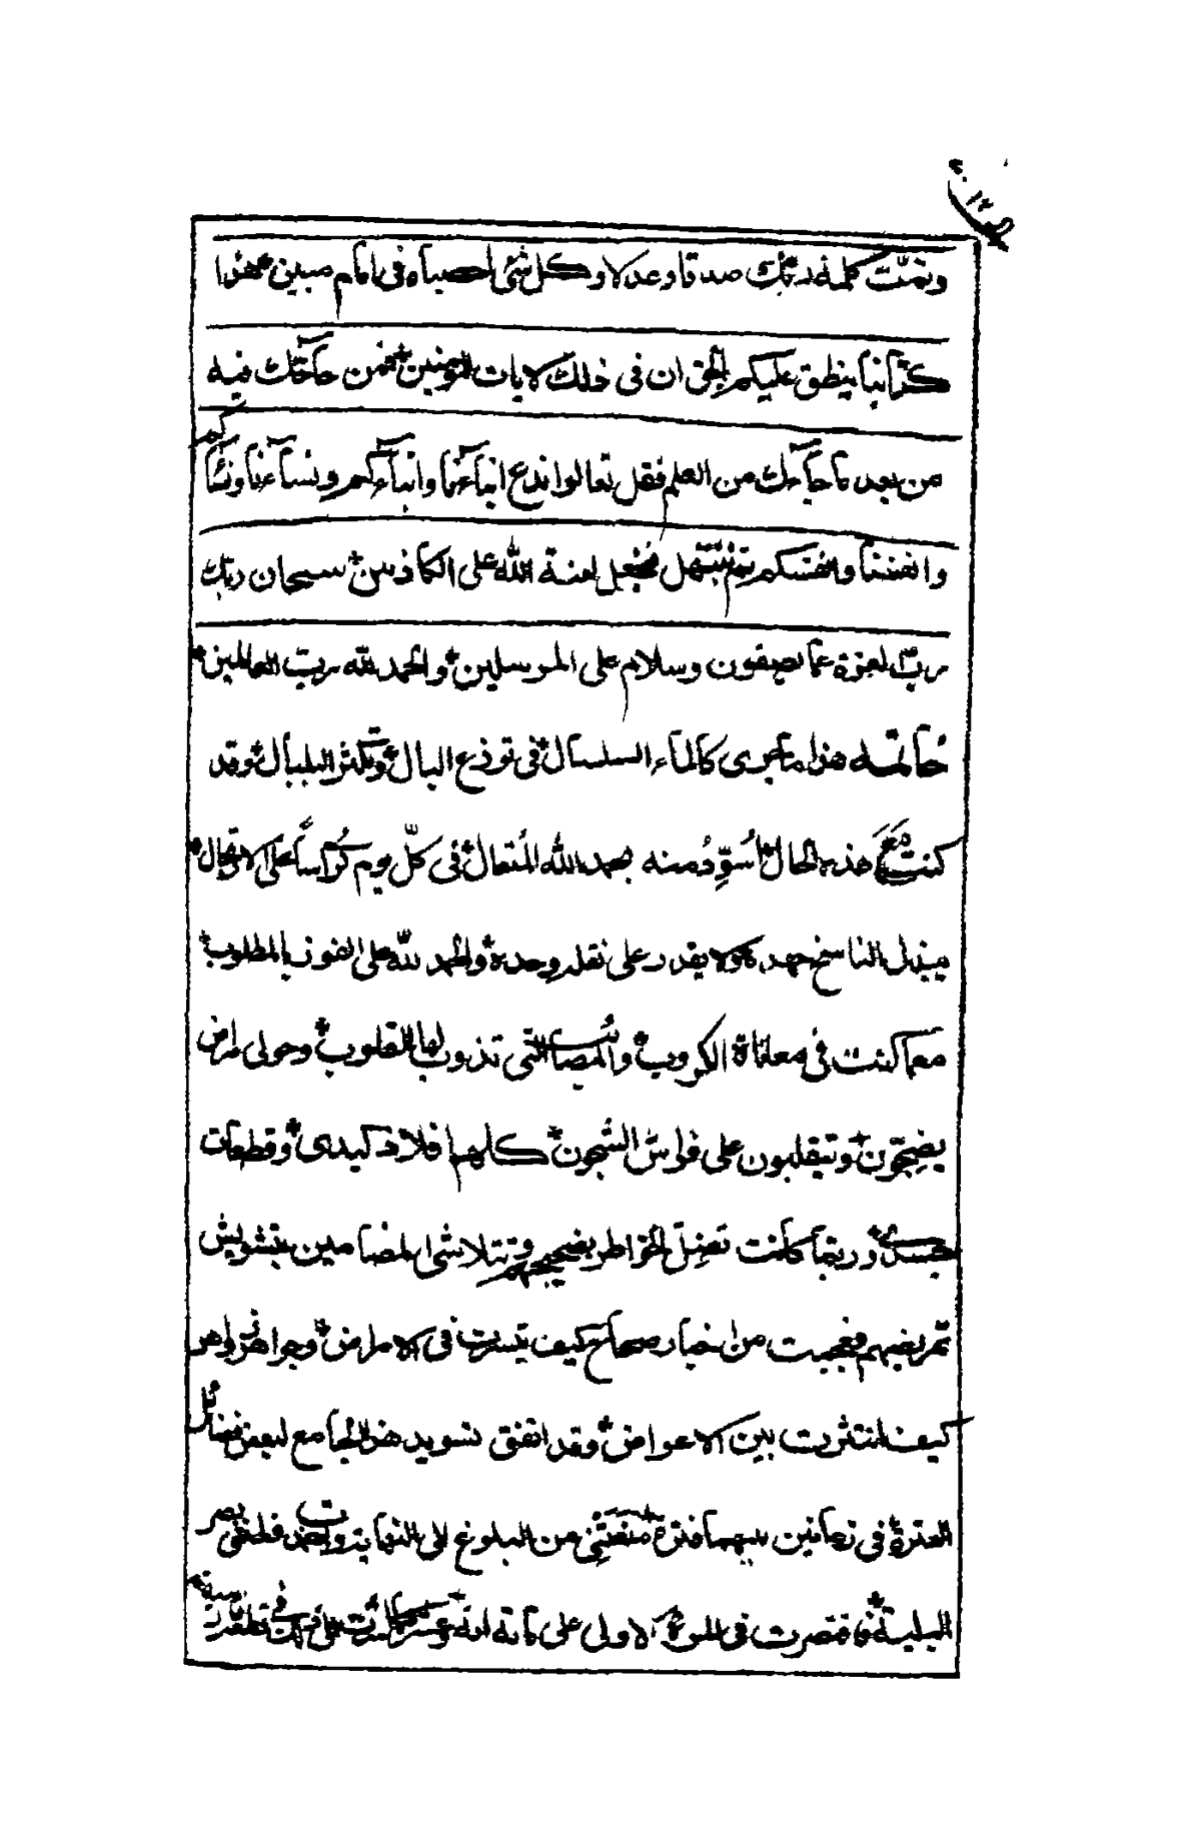 وتمّت كلمة ربّك صدقا وعدلا وكل شئ احصيناه فى امام مبين هذا
كتابنا ينطق عليكم بالحق ان فى ذلك لايات للمؤمنين فمن حاجّك فيه
من بعد ما جآءك من العلم فقل تعالوا ندع ابنآءنا وابنآءكم ونسآءنا ونسآءكم
وانفسنا وانفسكم ثم نبتهل فنجعل لعنة الله على الكاذبين سبحان ربك
ربّ العزة عمّا يصفون وسلام على المرسلين والحمد لله ربّ العالمين
خاتمة هذا ما جرى كالمآء السلسال فى توزع البال وتكثر البلبال وقد
كنت مع هذه الحال اُسوِّدُ منه بحمد الله المُتعال فى كلّ يوم كُرّاساً على الارتجال
يبذل الناسخ جهده ولا يقدر على نقله وحده والحمد لله على الفوز بالمطلوب
مع ما كنت فى معاناة الكروب والمصائب التى تذوب لها القلوب وحولى مراض
يضجّون ويتقلبون على فراش الشجون كلهم افلاذ كبدى وقطعات
جسدى وربما كانت تضلّ الخواطر بضجيجهم وتتلاشى المضامين بتشويش
تمريضهم فعجبت من اخبار صحاح كيف تيسرت فى الامراض وجواهر زواهر
كيف انتثرت بين الاعراض وقد اتفق تسويد هذا الجامع لبعض فضائل
العترة فى زمانين بينهما فترة منعتنى من البلوغ الى النهاية
البلية فاقتصرت فى المرة الاولى على مائة